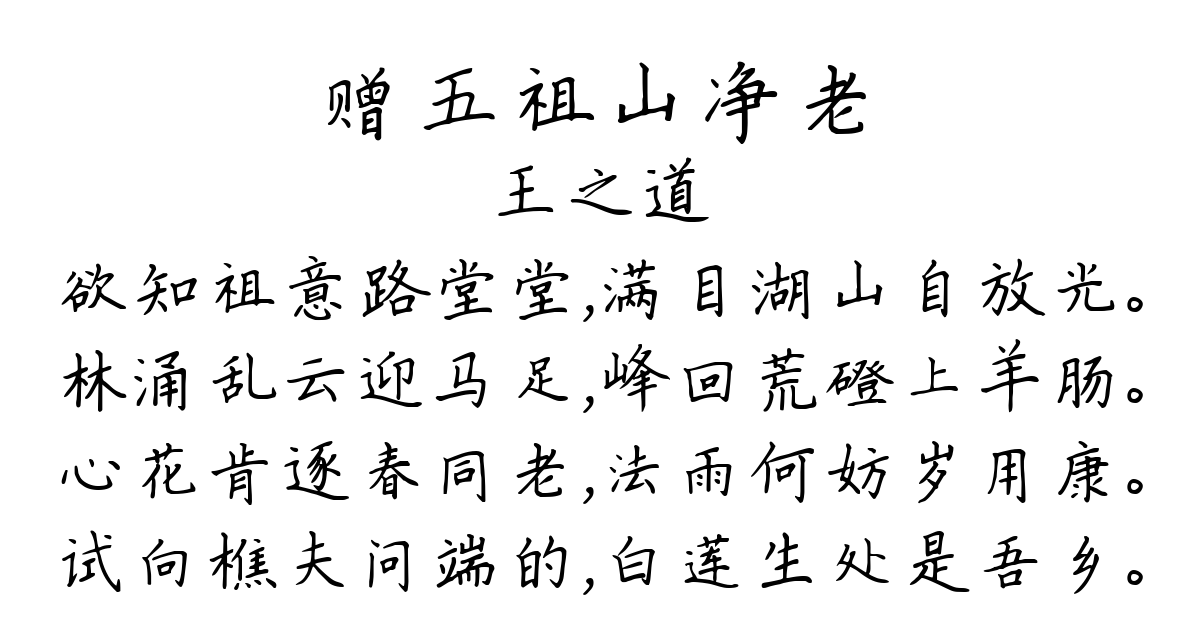 赠五祖山净老
王之道
欲知祖意路堂堂,满目湖山自放光。
林涌乱云迎马足,峰回荒磴上羊肠。
心花肯逐春同老,法雨何妨岁用康。
试向樵夫问端的,白莲生处是吾乡。